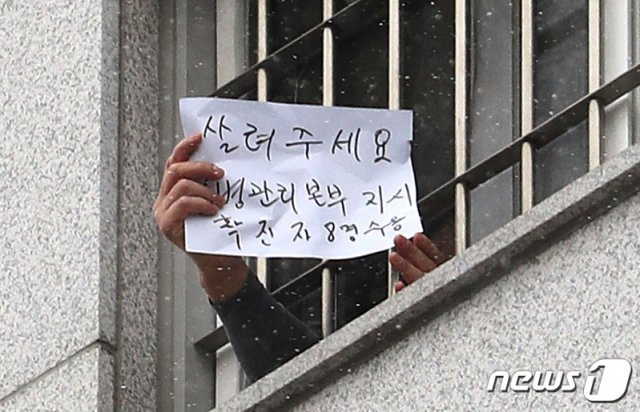 살려주세요
병관리본부 지시
확진자 8명 수용
news1